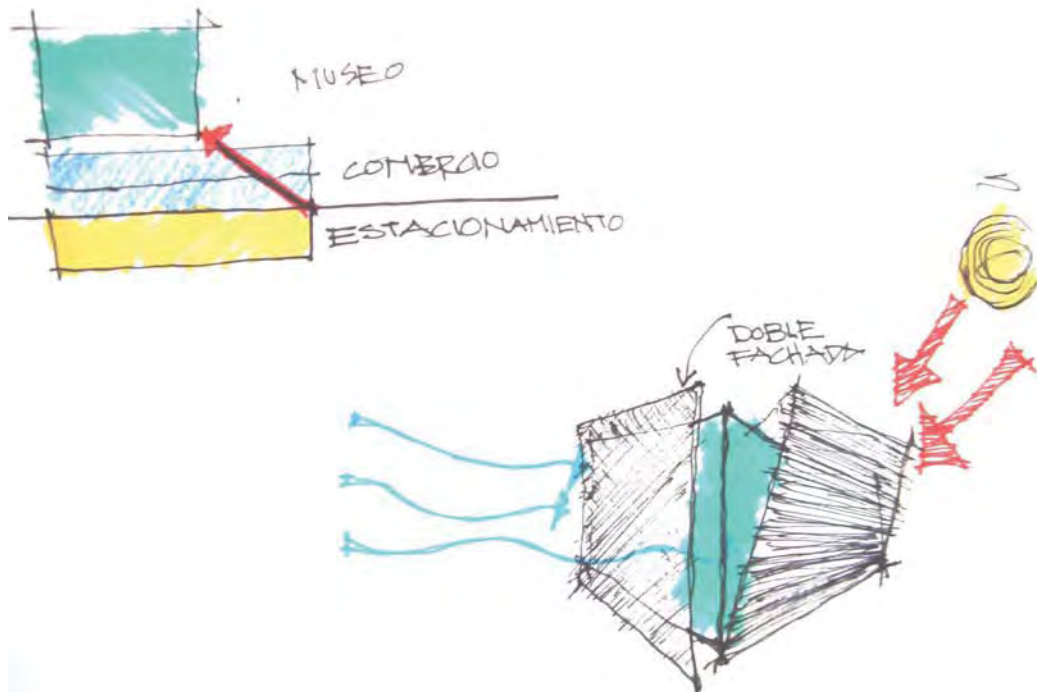 MUSEO
COMERCIO
ESTACIONAMIENTO
DOBLE
FACHADA